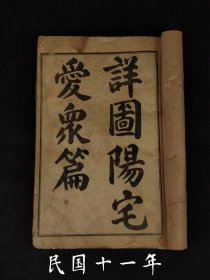 詳圖陽宅
愛衆篇
民国十一年